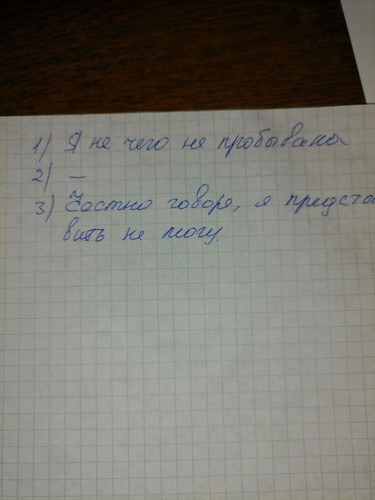 1) Я не чего не пробывала
2) —
3) Частно говоря, я предста
вить не могу.